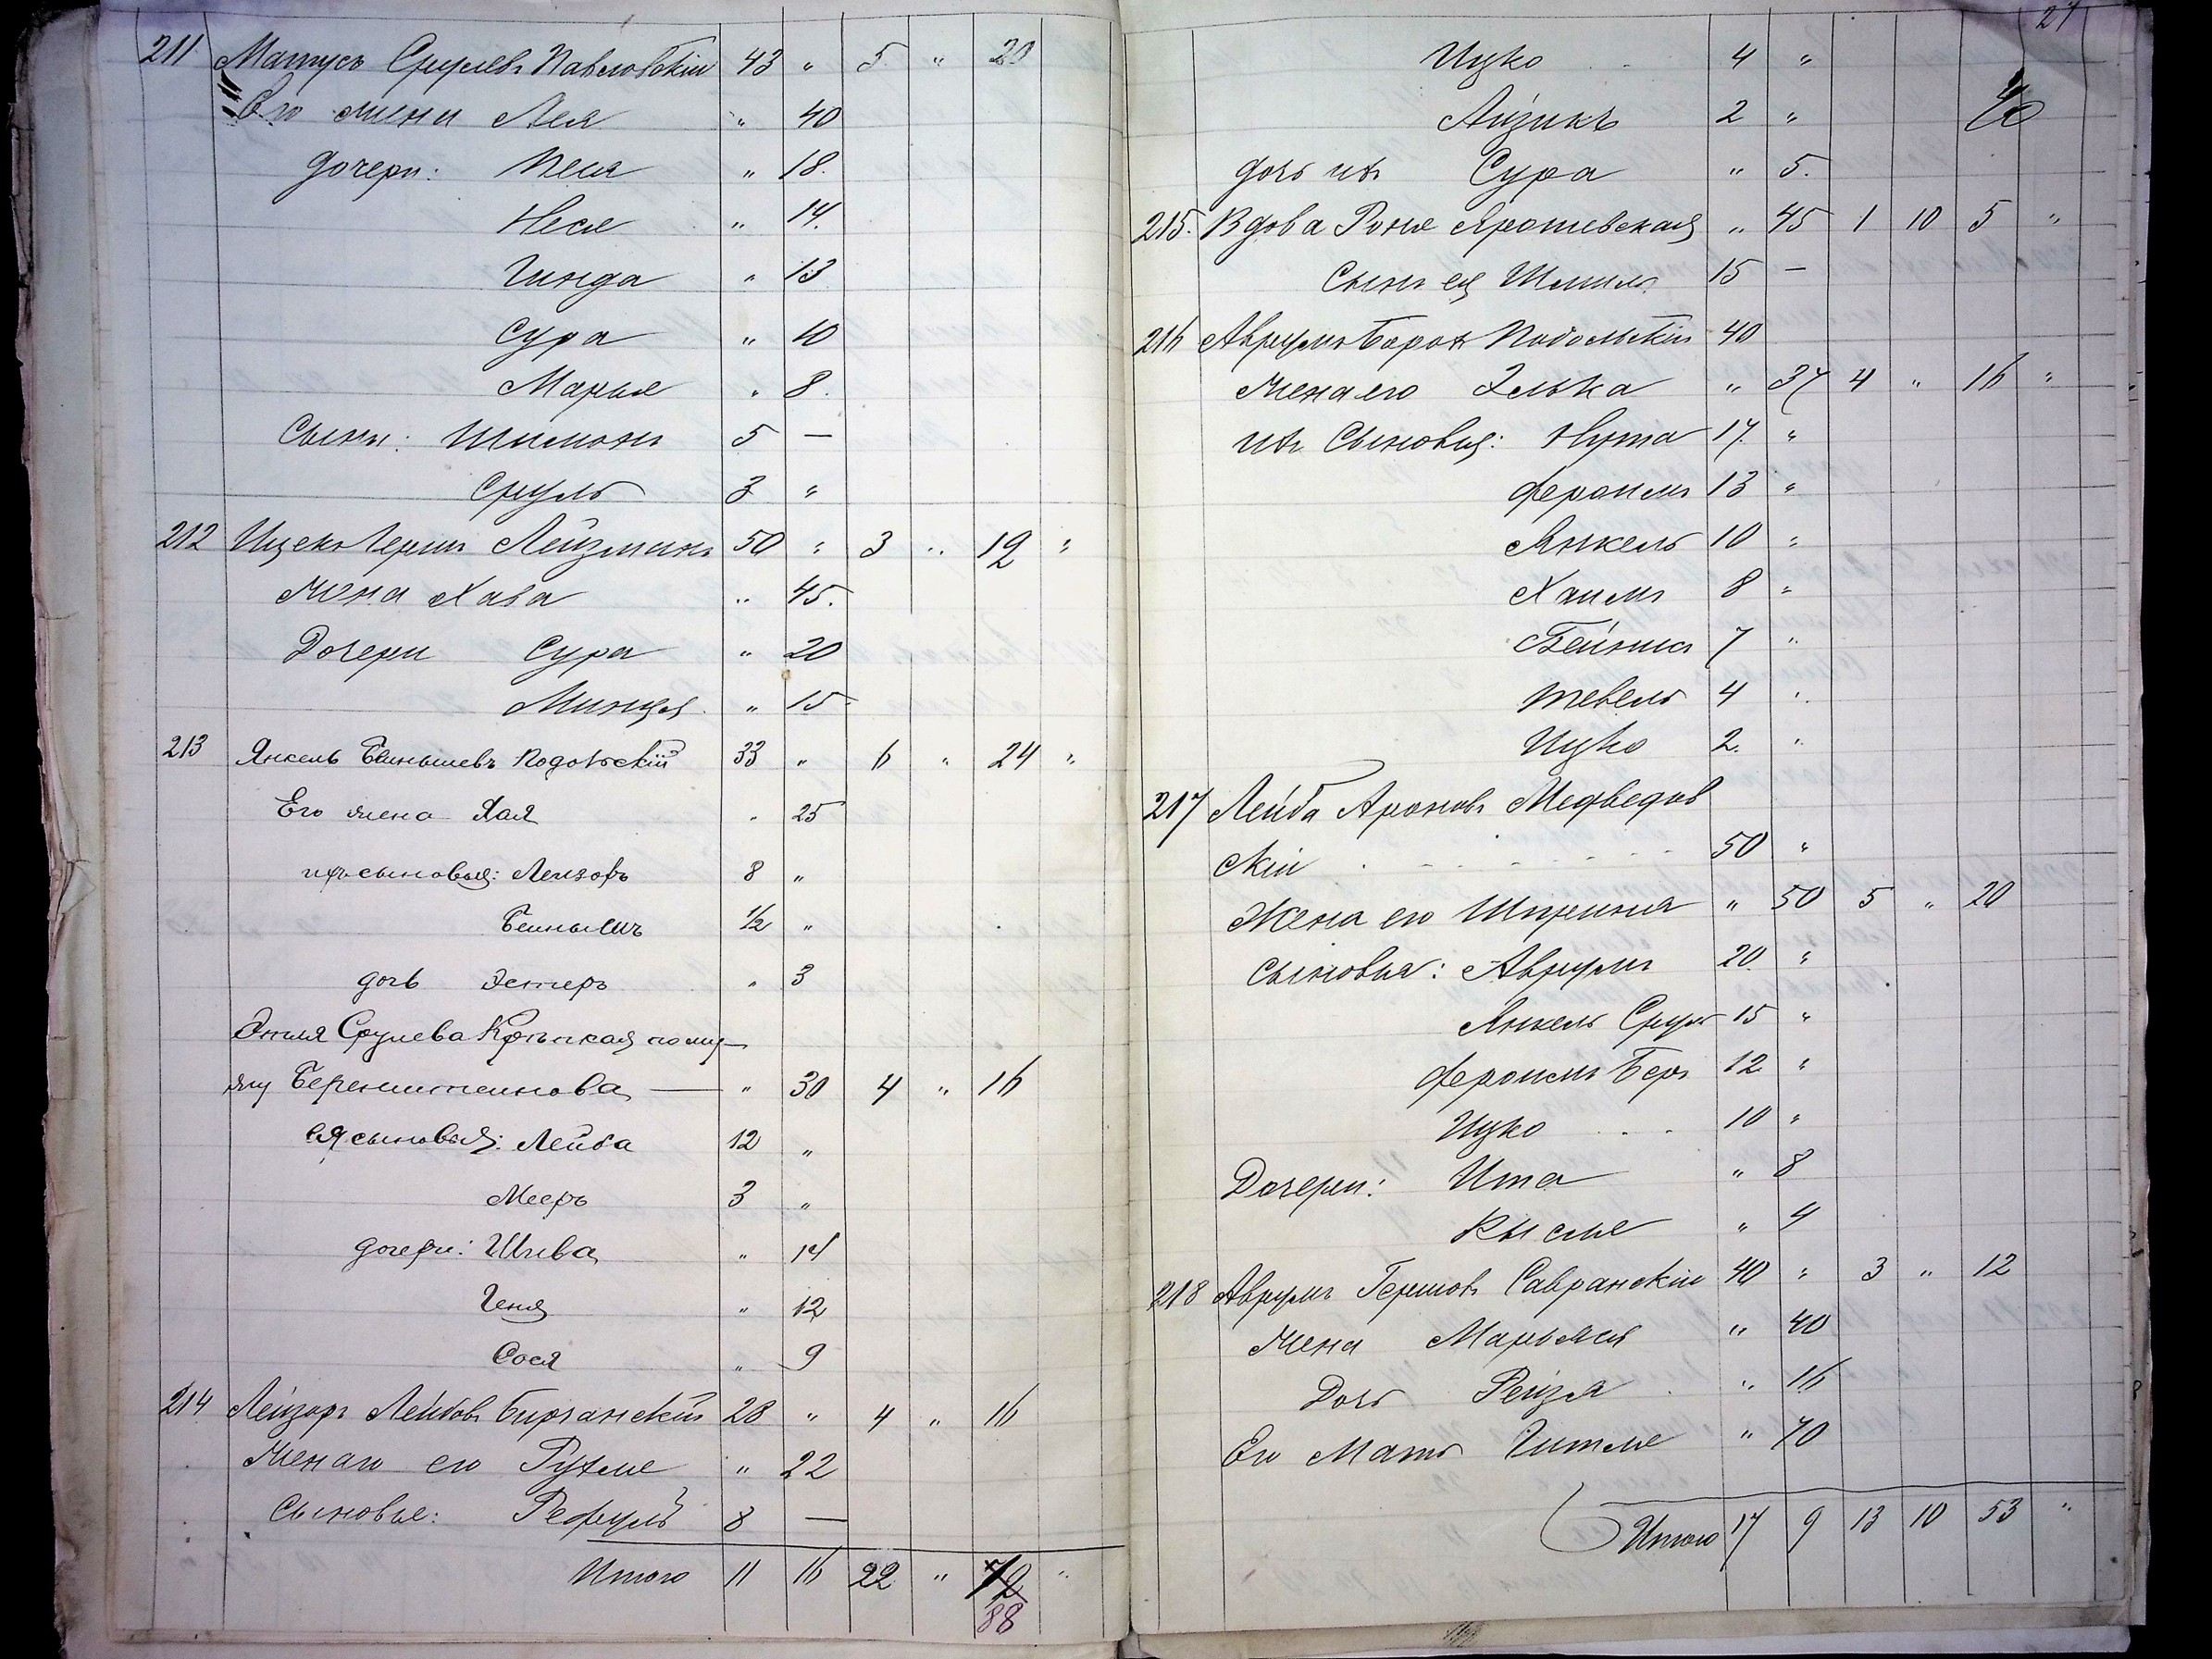 211 Матусъ Срулевъ Павловскій 43 " 5 " 20
Его жена Лея " 40
дочери: Песя " 18.
Неся " 14.
Гинда " 13
Сура " 10
Марья " 8.
Сыны: Шимонъ 5 —
Сруль 3 "
212 Ицекъ Герш Лейзманъ 50 " 3 " 19 "
Жена Хава " 45.
Дочери Сура " 20
Минця " 15
213 Янкель Бенышевъ Подольскій 33 " 6 " 24 "
Его жена Хая " 25
ихъ сыновья: Лейзоръ 8 "
Бенышъ 1/2 "
дочь Эстеръ " 3
Этля Срулева по му-
жу Беренштейнова — " 30 4 " 16
ея сыновья: Лейба 12 "
Мееръ 3 "
дочери: Шива " 14
Геня " 12
Сося " 9
214 Лейзоръ Лейбовъ Бирчанскій 28 " 4 " 16
Женаго его Рухля " 22
Сыновья: Рефулъ 8 —
Итого 11 16 22 " 72 "
88
27
Ицко 4 "
Айзикъ 2 "
дочь ихъ Сура " 5.
215. Вдова Роня Ярошевская " 45 1 10 5 "
Сынъ ея Шмиль 15 —
216 Аврумъ Борох Подольскій 40
Жена его Элька " 37 4 " 16 "
ихъ Сыновья: Нута 17. "
Фероимъ 13 "
Янкель 10 "
Хаимъ 8 "
Бейнишъ 7 "
Тевель 4 "
Ицко 2. "
217 Лейба Ароновъ Медведов
скій 50 "
Жена его Шпринця " 50 5 " 20
Сыновья: Аврумъ 20. "
Янкель Сруль 15 "
Фероимъ Беръ 12 "
Ицко 10 "
Дочери: Ита " 8
Рысля " 4
218 Аврумъ Гершовъ Савранскій 40 " 3 " 12
Жена Марьяся " 40
Дочь Рейзя " 16
Его Мать Гитля " 70
Итого 17 9 13 10 53 "